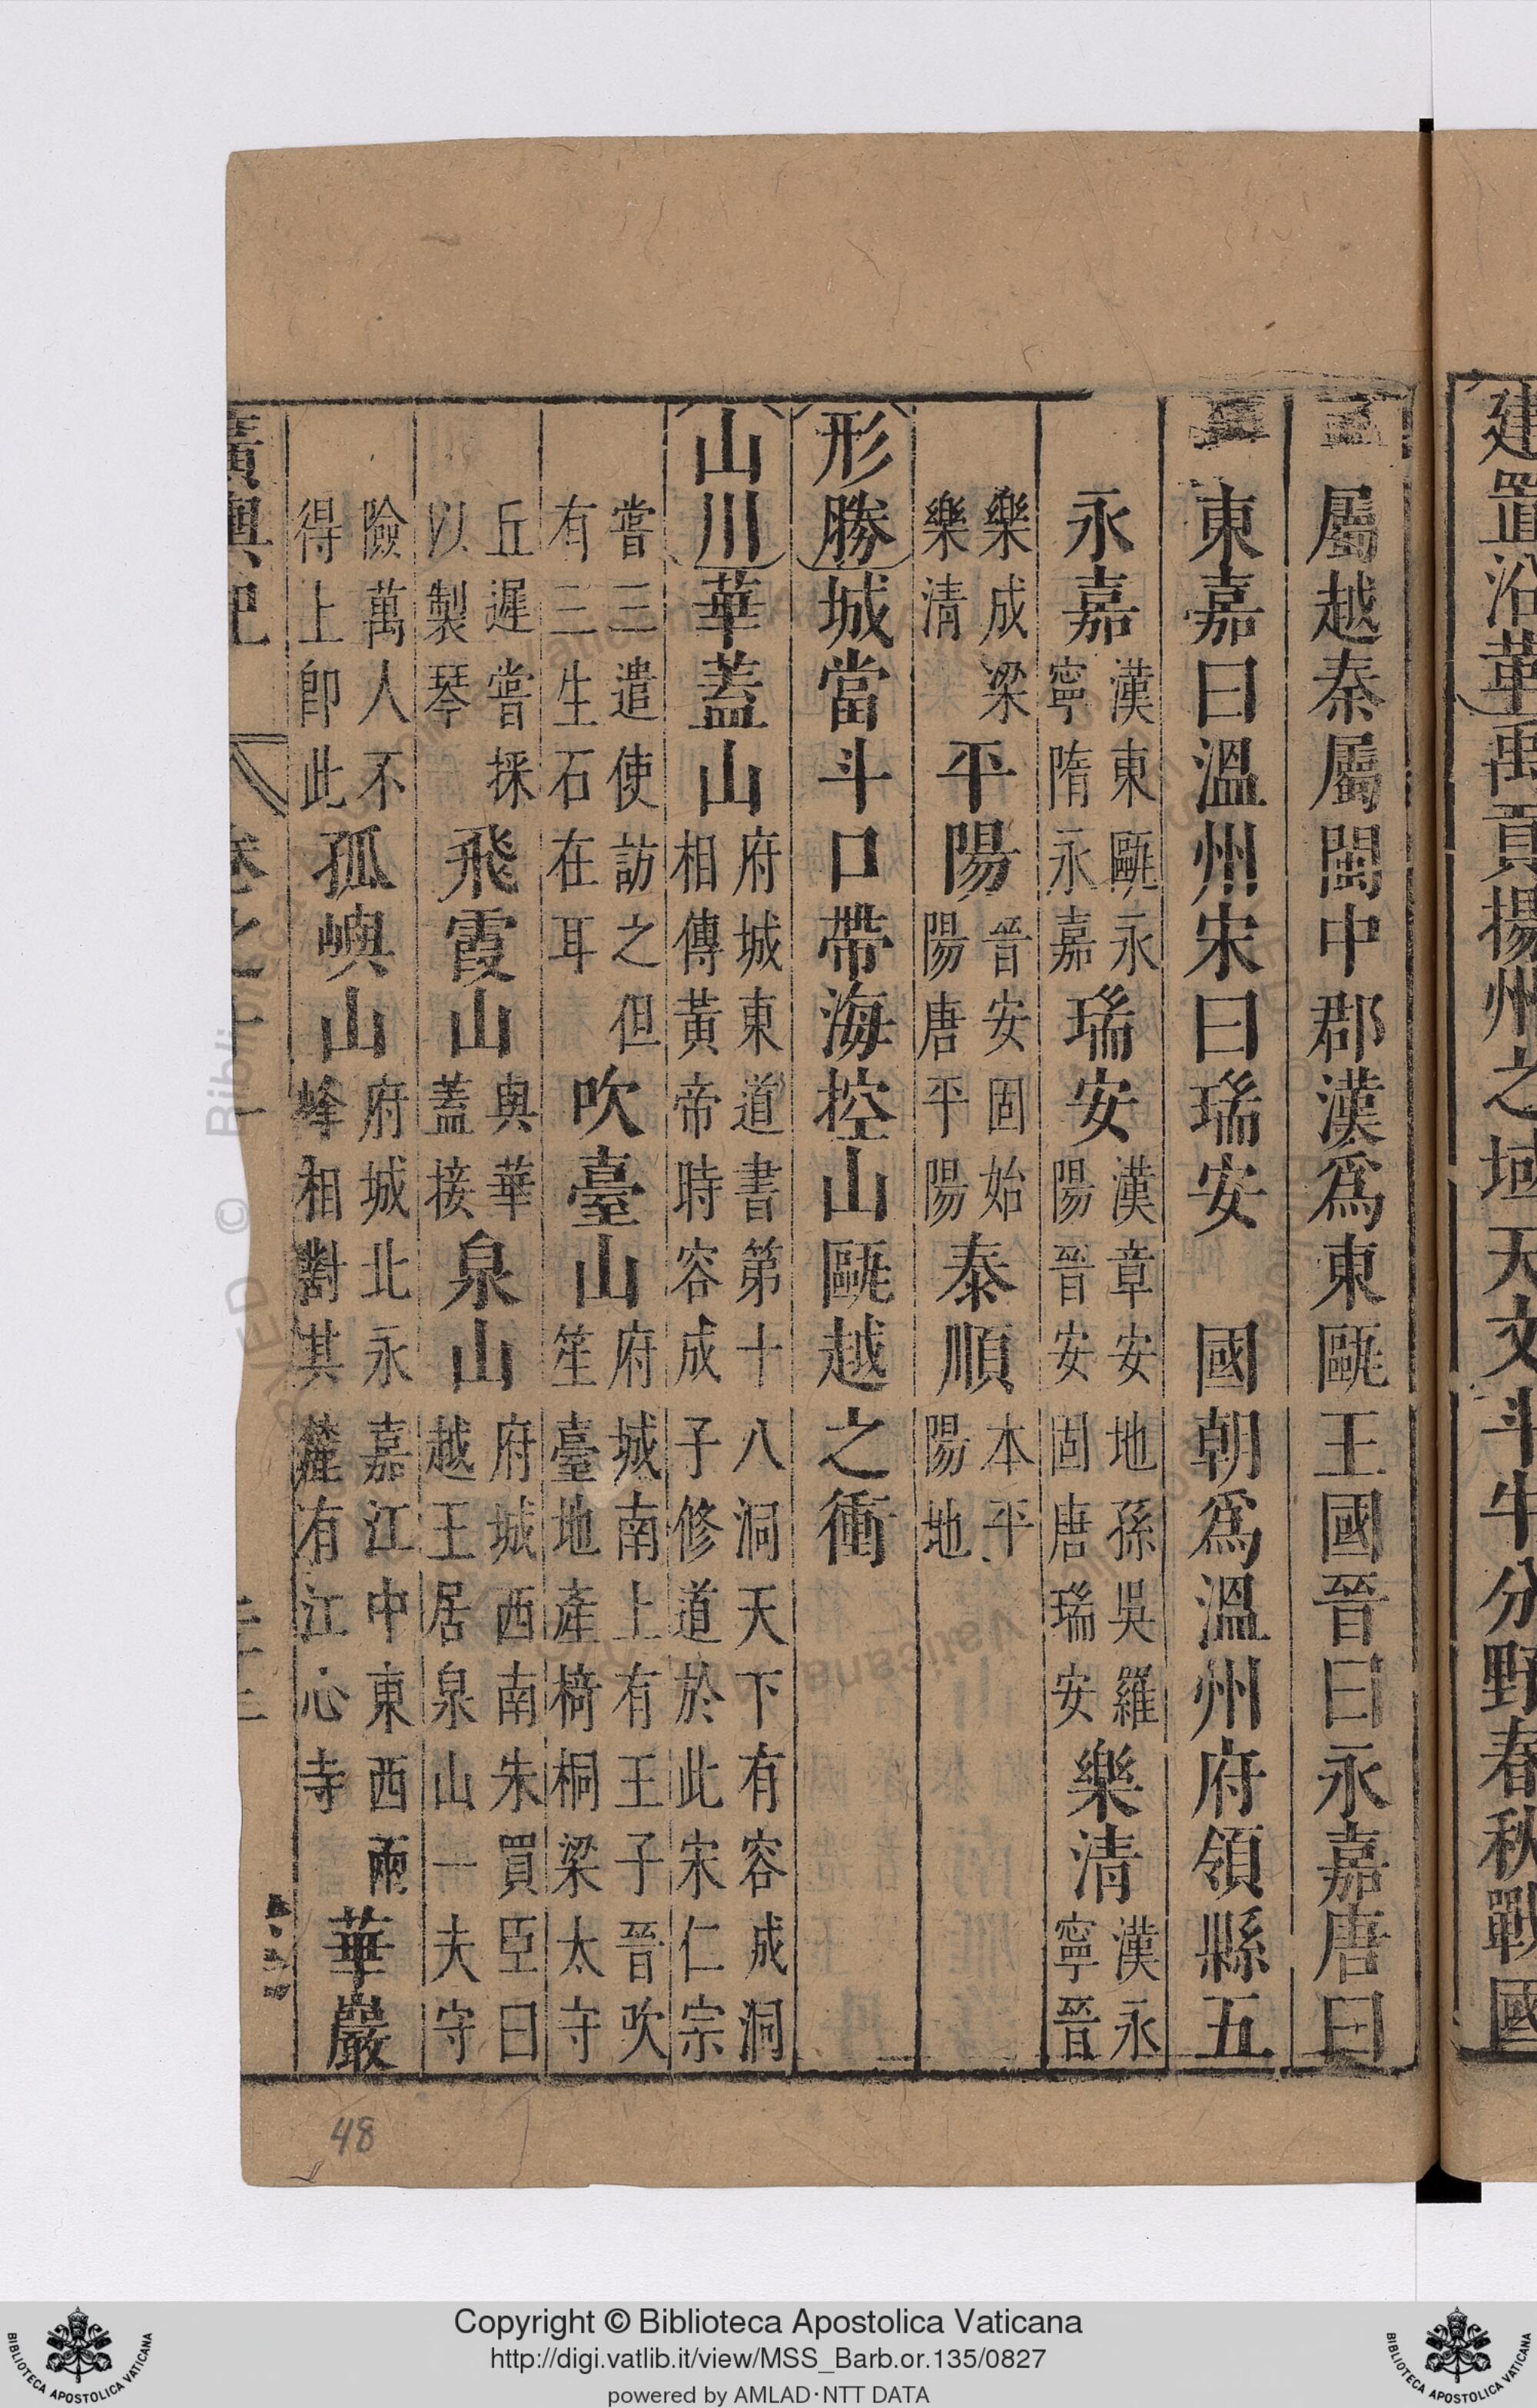 建置沿革禹貢揚州之域天文斗牛分野春秋戰國
屬越秦屬閩中郡漢爲東甌王國晉曰永嘉唐曰
東嘉曰溫州宋曰瑞安 國朝爲溫州府領縣五
永嘉
漢東甌永
寧隋永嘉
瑞安
漢章安地孫吳羅
陽晉安固唐瑞安
樂清
漢永
寧晉
樂成梁
樂清
平陽
晉安固始
陽唐平陽
泰順
本平
陽地
形勝城當斗口帶海控山甌越之衝
山川華蓋山
府城東道書第十八洞天下有容成洞
相傳黃帝時容成子修道於此宋仁宗
嘗三遣使訪之但
有三生石在耳
吹臺山
府城南上有王子晉吹
笙臺地產椅桐梁太守
丘遲嘗採
以製琴
飛霞山
與華
蓋接
泉山
府城西南朱買臣曰
越王居泉山一夫守
險萬人不
得上卽此
孤嶼山
府城北永嘉江中東西兩
峰相對其麓有江心寺
華嚴
廣輿記 卷之十一
48
Copyright © Biblioteca Apostolica Vaticana
http://digi.vatlib.it/view/MSS_Barb.or.135/0827
powered by AMLAD·NTT DATA
BIBLIOTECA APOSTOLICA VATICANA
BIBLIOTECA APOSTOLICA VATICANA